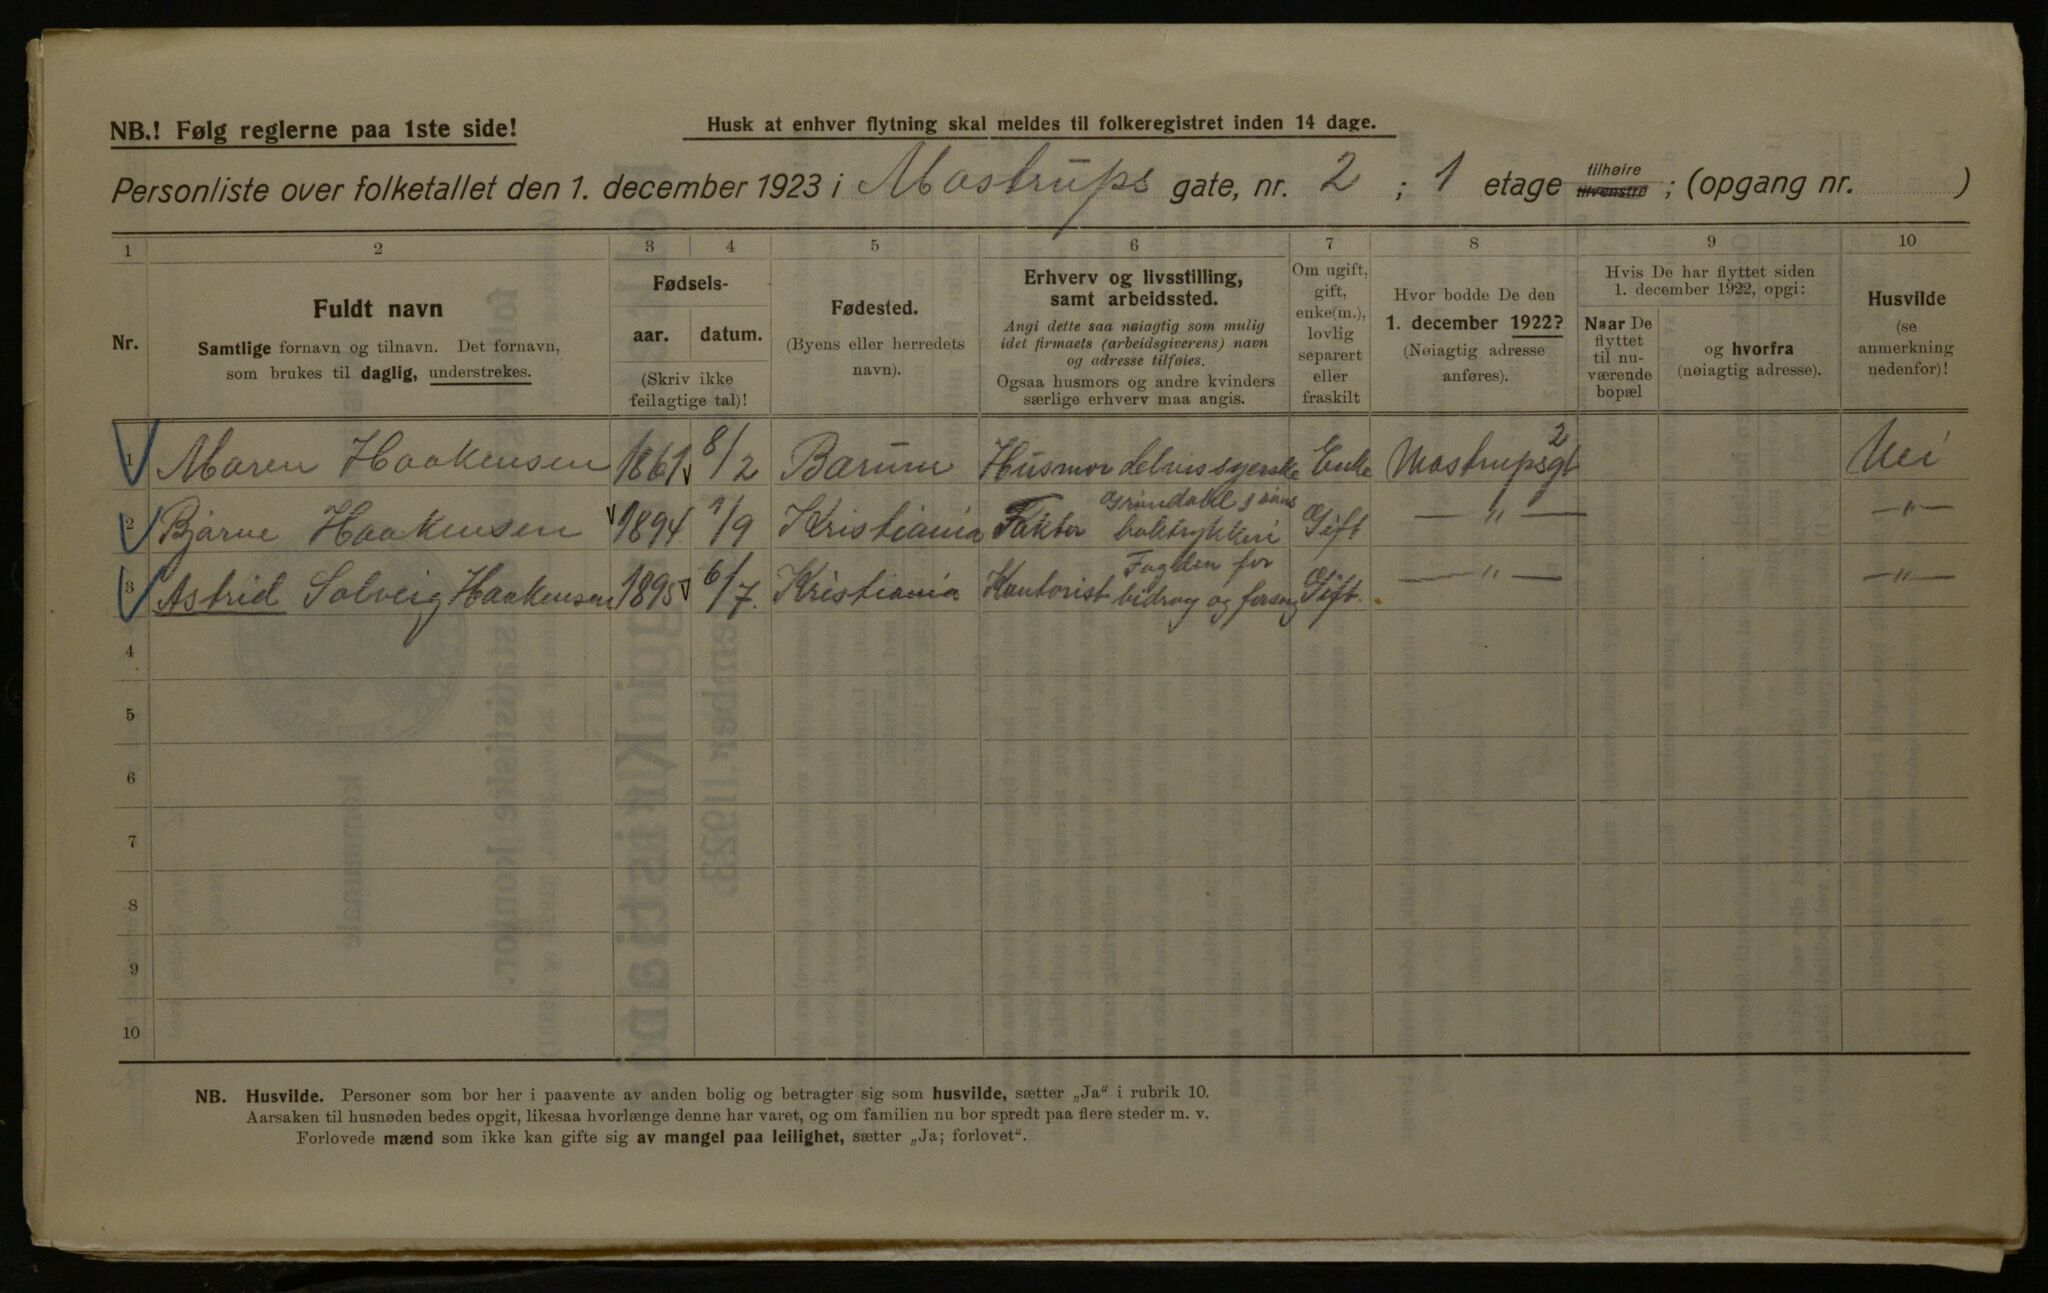 NB.! Følg reglerne paa 1ste side!
Husk at enhver flytning skal meldes til folkeregistret inden 14 dage.
Personliste over folketallet den 1. december 1923 i Mostrups gate, nr. 2 ; 1 etage tilhøire tilvenstre ; (opgang nr. )
1 2 3 4 5 6 7 8 9 10
Nr.
Fuldt navn
Samtlige fornavn og tilnavn. Det fornavn,
som brukes til daglig, understrekes.
Fødsels-
aar. datum.
(Skriv ikke
feilagtige tal)!
Fødested.
(Byens eller herredets
navn).
Erhverv og livsstilling,
samt arbeidssted.
Angi dette saa nøiagtig som mulig
idet firmaets (arbeidsgiverens) navn
og adresse tilføies.
Ogsaa husmors og andre kvinders
særlige erhverv maa angis.
Om ugift,
gift,
enke(m.),
lovlig
separert
eller
fraskilt
Hvor bodde De den
1. december 1922?
(Nøiagtig adresse
anføres).
Hvis De har flyttet siden
1. december 1922, opgi:
Naar De
flyttet
til nu-
værende
bopæl
og hvorfra
(nøiagtig adresse).
Husvilde
(se
anmerkning
nedenfor)!
1 Maren Haakensen 1861 8/2 Bærum Husmor delvis syerske Enke Mostrupsgt 2 Nei
2 Bjarne Haakensen 1894 1/9 Kristiania Faktor Grøndahl & søns boktrykkeri Gift — " — — " —
3 Astrid Solveig Haakensen 1895 6/7. Kristiania Kontorist Fogden for bidrag og forsørg Gift. — " — — " —
4
5
6
7
8
9
10
NB. Husvilde. Personer som bor her i paavente av anden bolig og betragter sig som husvilde, sætter „Ja" i rubrik 10.
Aarsaken til husnøden bedes opgit, likesaa hvorlænge denne har varet, og om familien nu bor spredt paa flere steder m. v.
Forlovede mænd som ikke kan gifte sig av mangel paa leilighet, sætter „Ja; forlovet".